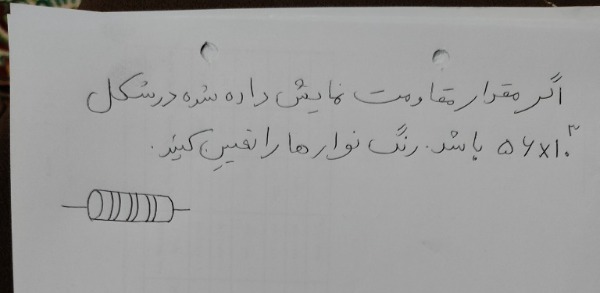 اگر مقدار مقاومت نمایش داده شده در شکل
۵۶×۱۰^۳ باشد. رنگ نوارها را تعیین کنید.